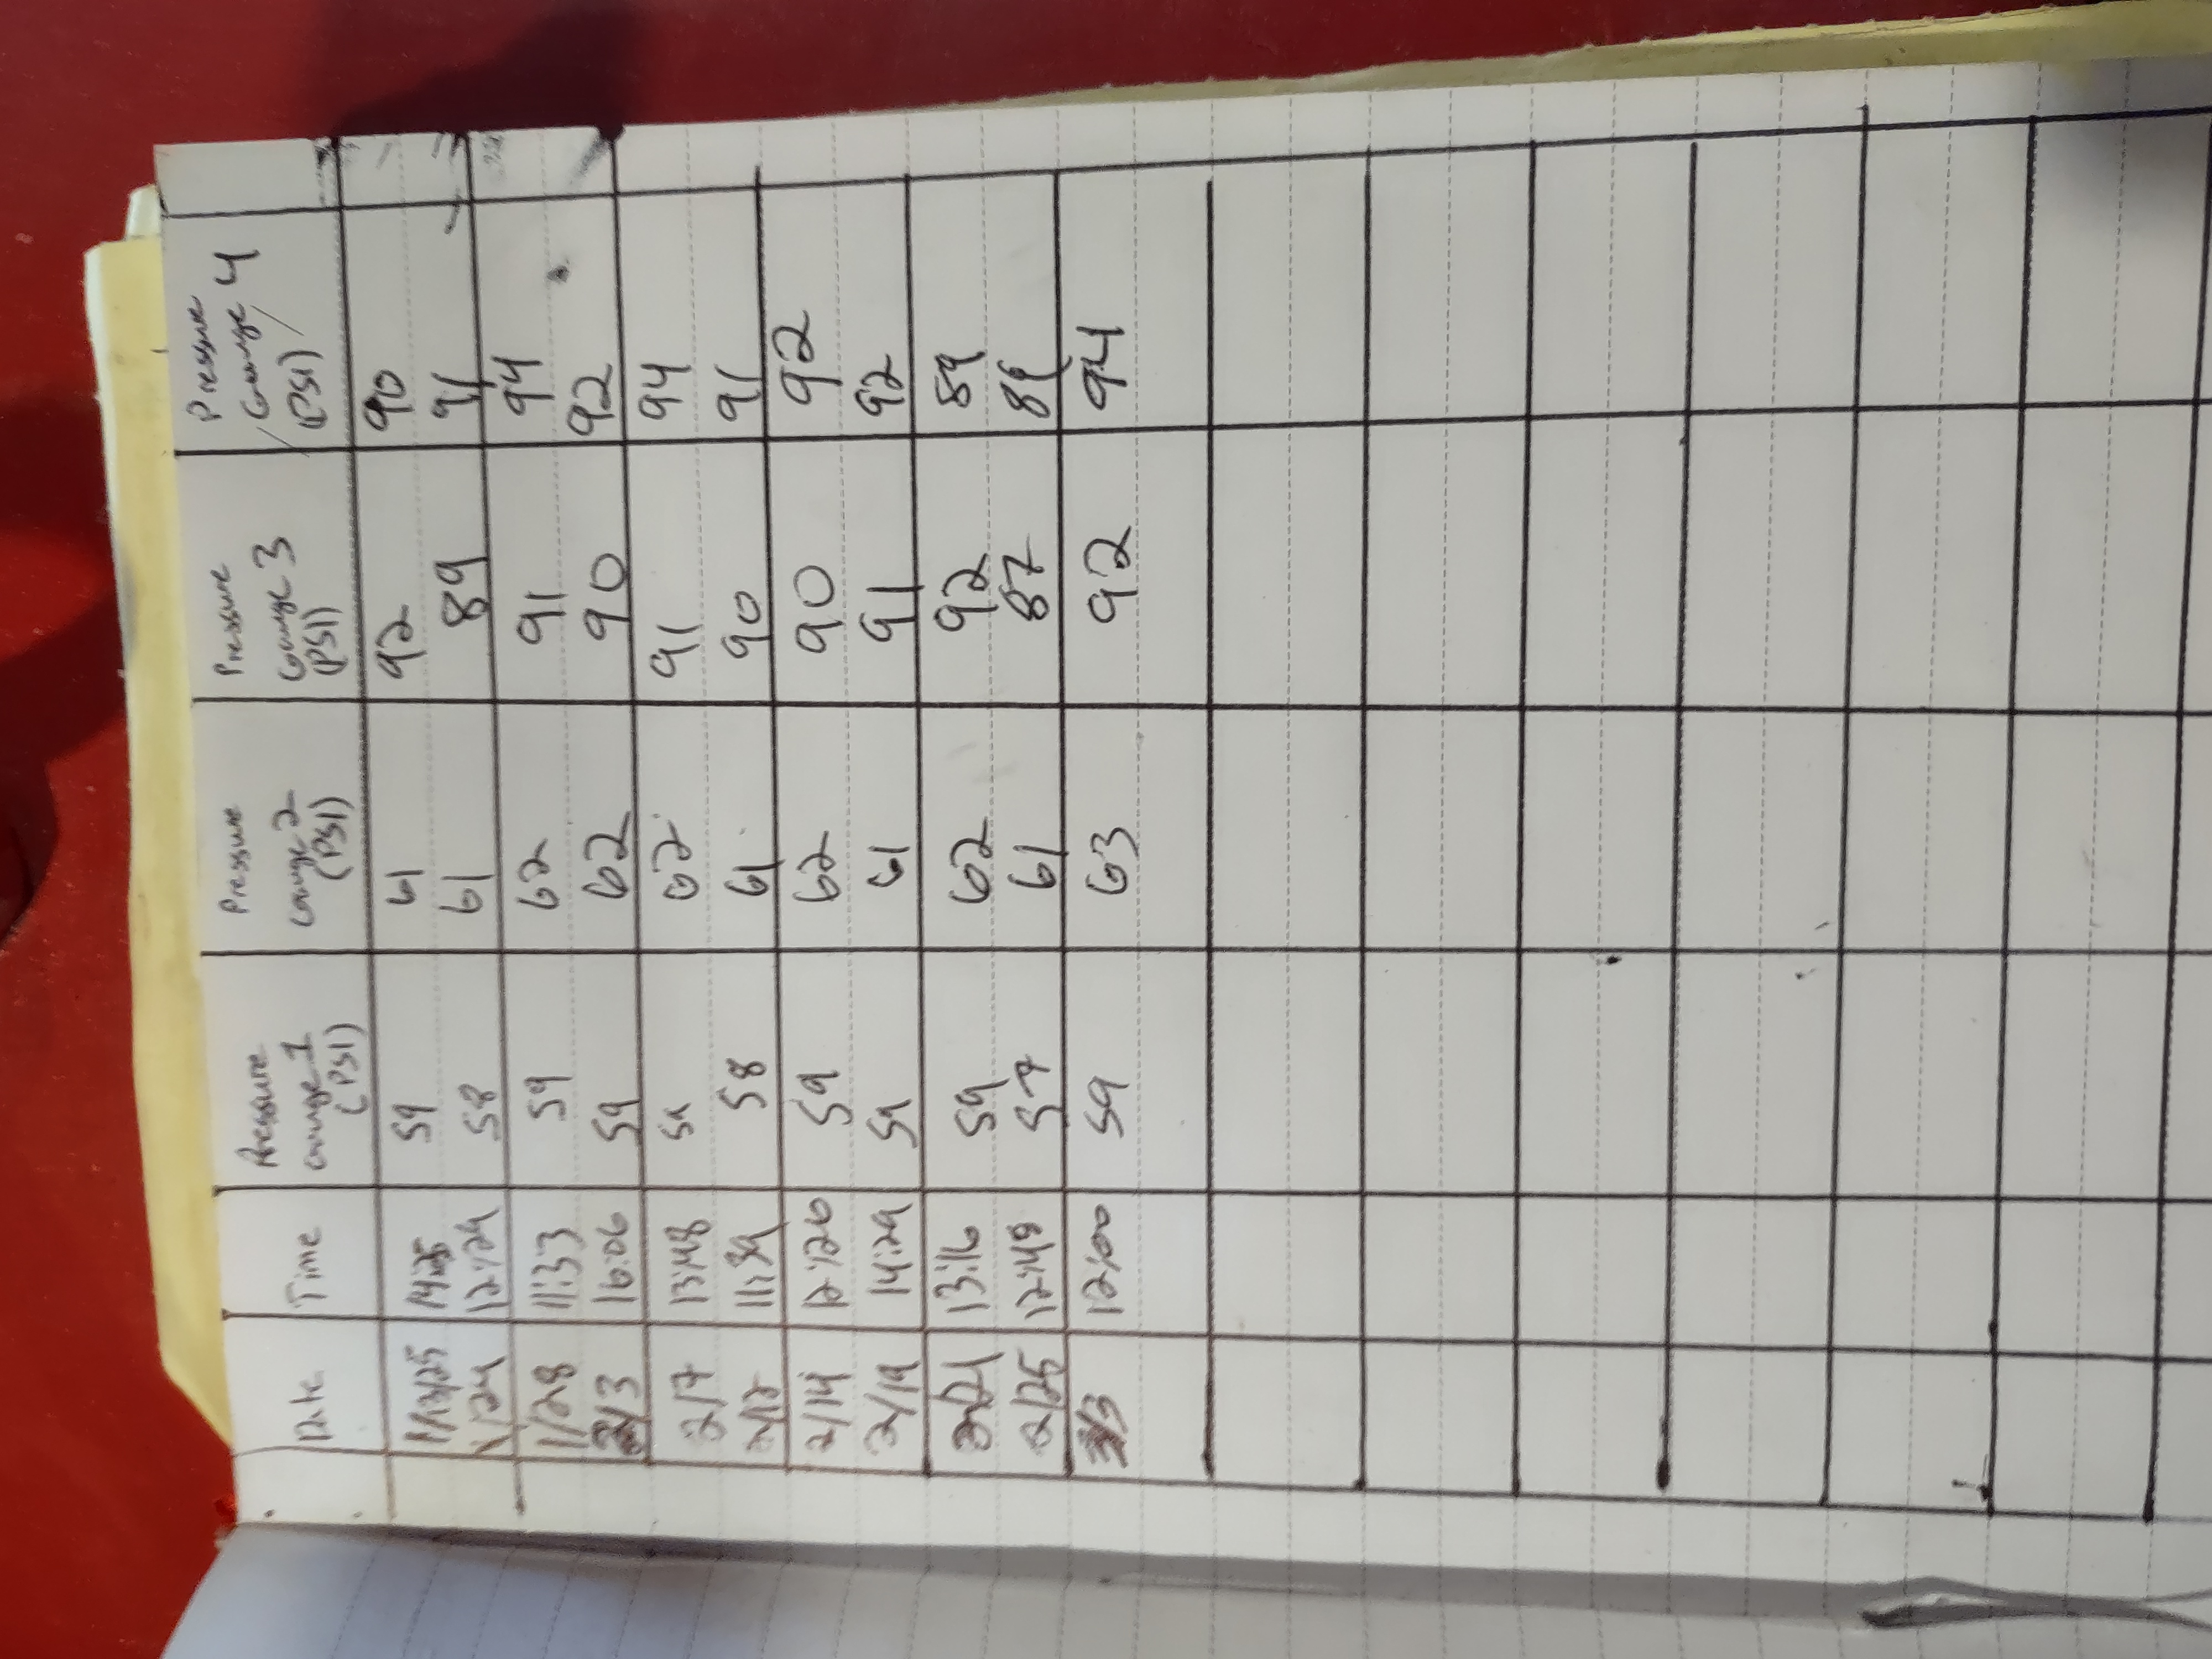 Date Time Pressure Gauge 1 (PSI) Pressure Gauge 2 (PSI) Pressure Gauge 3 (PSI) Pressure Gauge 4 (PSI)
1/13/25 14:25 59 61 92 90
1/24 12:29 58 61 89 91
1/28 11:33 59 62 91 94
2/3 16:06 59 62 90 92
2/7 13:48 59 62 91 94
2/12 11:39 58 61 90 91
2/14 12:26 59 62 90 92
2/19 14:29 59 61 91 92
2/21 13:16 59 62 92 89
2/25 57 61 87 89
3/3 12:00 59 63 92 94